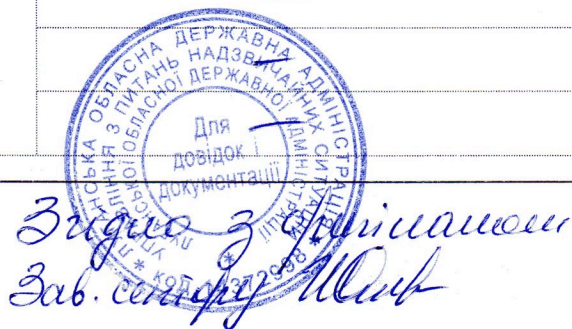 ЛУГАНСЬКА ОБЛАСНА ДЕРЖАВНА АДМІНІСТРАЦІЯ
УПРАВЛІННЯ З ПИТАНЬ НАДЗВИЧАЙНИХ СИТУАЦІЙ
ЛУГАНСЬКОЇ ОБЛАСНОЇ ДЕРЖАВНОЇ АДМІНІСТРАЦІЇ
Для
довідок і
документації
* код
Згідно з оригіналом
Зав. сектору